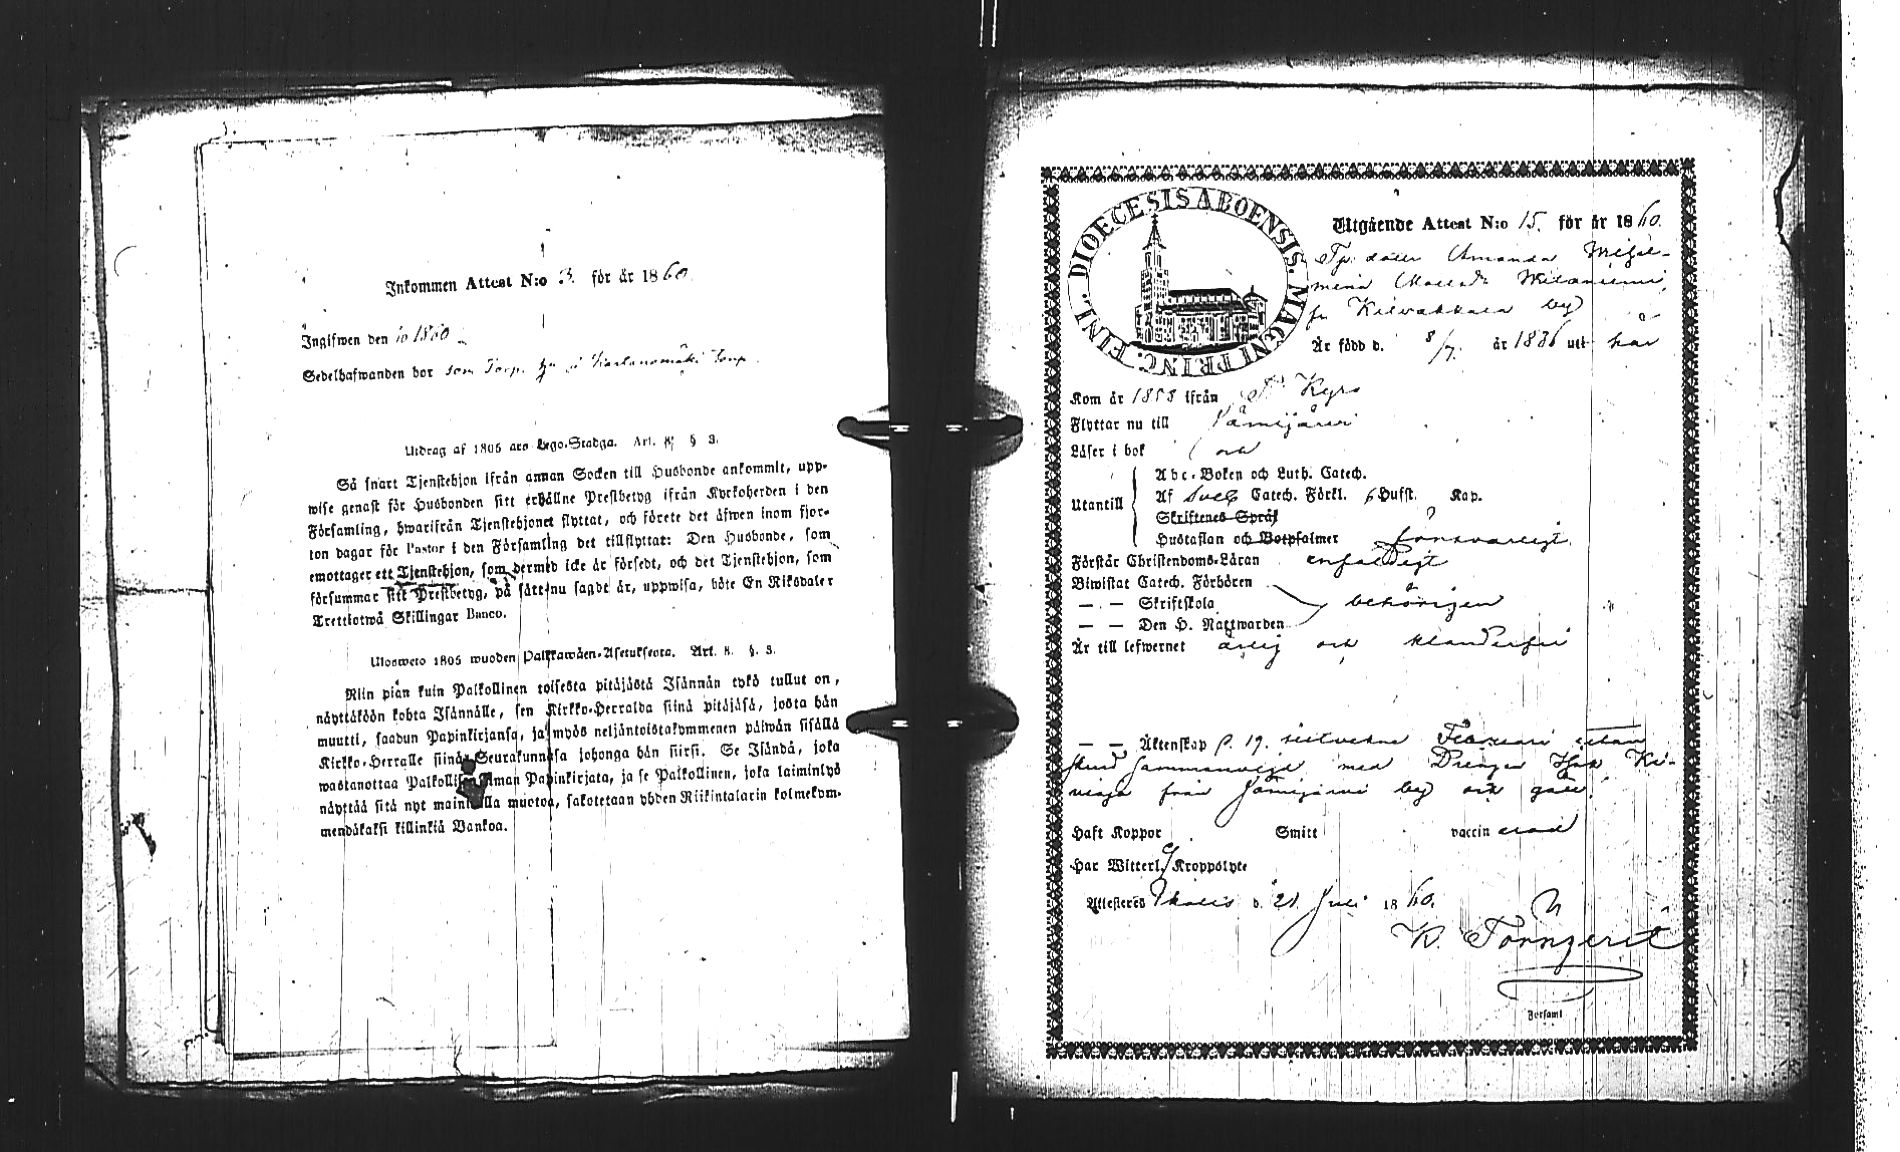 Inkommen Attest N:o 3. för år 1860.
Ingifwen den io 1860
Sedelhafwanden bor som Torp. hu å Kartanomäki Torp.
Utdrag af 1805 års Lego-Stadga. Art. 8. § 3.
Så snart Tjenstehjon ifrån annan Socken till Husbonde ankommit, upp-
wise genast för Husbonden sitt erhållne Prestbetyg ifrån Kyrkoherden i den
Församling, hwarifrån Tjenstehjonet flyttat, och förete det äfwen inom fjor-
ton dagar för Pastor i den Församling det tillflyttat: Den Husbonde, som
emottager ett Tjenstehjon, som dermed icke är försedt, och det Tjenstehjon, som
försummar sitt Prestbetyg, på sätt nu sagdt är, uppwisa, böte En Riksdaler
Trettiotwå Skillingar Banco.
Ulosweto 1805 wuoden Palkkawäen-Asetuksesta. Art. 8. §. 3.
Niin pian kuin Palkollinen toisesta pitäjästä Isännän tykö tullut on,
näyttäköön kohta Isännälle, sen Kirkko-Herralda siinä pitäjäsä, josta hän
muutti, saadun Papinkirjansa, ja myös neljäntoistakymmenen päiwän sisällä
Kirkko-Herralle siinä Seurakunnasa johonga hän siirsi. Se Isändä, joka
wastanottaa Palkollisen ilman Papinkirjata, ja se Palkollinen, joka laiminlyö
näyttää sitä nyt mainitulla muotoa, sakotetaan yhden Riikintalarin kolmekym-
mendäkaksi killinkiä Bankoa.
DIOECESIS ABOENSIS. MAGNI PRINC. FINL.
Utgående Attest N:o 15. för år 1860.
Tp. dotter Amanda Wilhel-
mina
fr. Kilvakkala by
Är född d. 8/7. år 1836 uti här
Kom år 1858 ifrån T. Kyro
Flyttar nu till Jämijärvi
Läser i bok
Utantill
Abc-Boken och Luth. Catech.
Af Sveb Catech. Förkl. 6 Hufst. Kap.
Skriftenes Språk
Hustaflan och Botpsalmer försvarligt.
Förstår Christendoms-Läran enfaldigt
Biwistat Catech. Förhören
— — Skriftskola behörigen
— — Den H. Nattwarden
Är till lefwernet ärlig och klanderfri
— — Äktenskap p. 19. Februari utan
hind sammanvigd med Drengen
från Jämijärvi by och gård.
Haft Koppor Smitt vaccin erad
Har Witterl. Kroppslyte
Attesteras Ikalis d. 21 Juli 1860.
K. Törnqvist
Församl